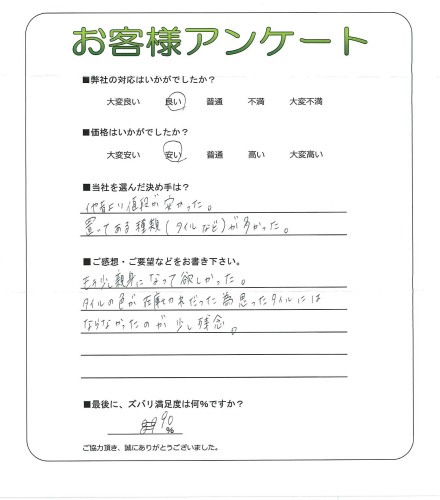 お客様アンケート
■弊社の対応はいかがでしたか？
大変良い 良い 普通 不満 大変不満
■価格はいかがでしたか？
大変安い 安い 普通 高い 大変高い
■当社を選んだ決め手は？
他者より値段が安かった。
置いてある種類(タイルなど)が多かった。
■ご感想・ご要望などをお書き下さい。
もう少し親身になって欲しかった。
タイルの色が在庫カネだった為思ったタイルには
ならなかったのが少し残念。
■最後に、ズバリ満足度は何%ですか？
90
%
ご協力頂き、誠にありがとうございました。